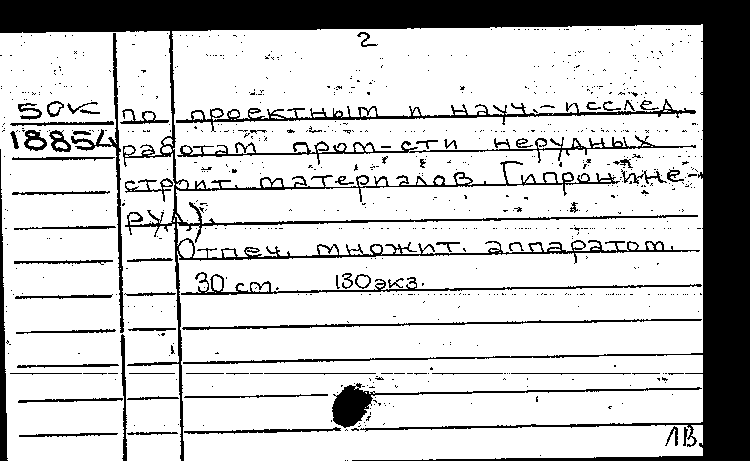 2
50К по проектным и науч.-исслед.
18854 работам пром-сти нерудных
строит. материалов. Гипронине-
руд).
Отпеч. множит. аппаратом.
30 ст. 130 экз.
ЛВ.